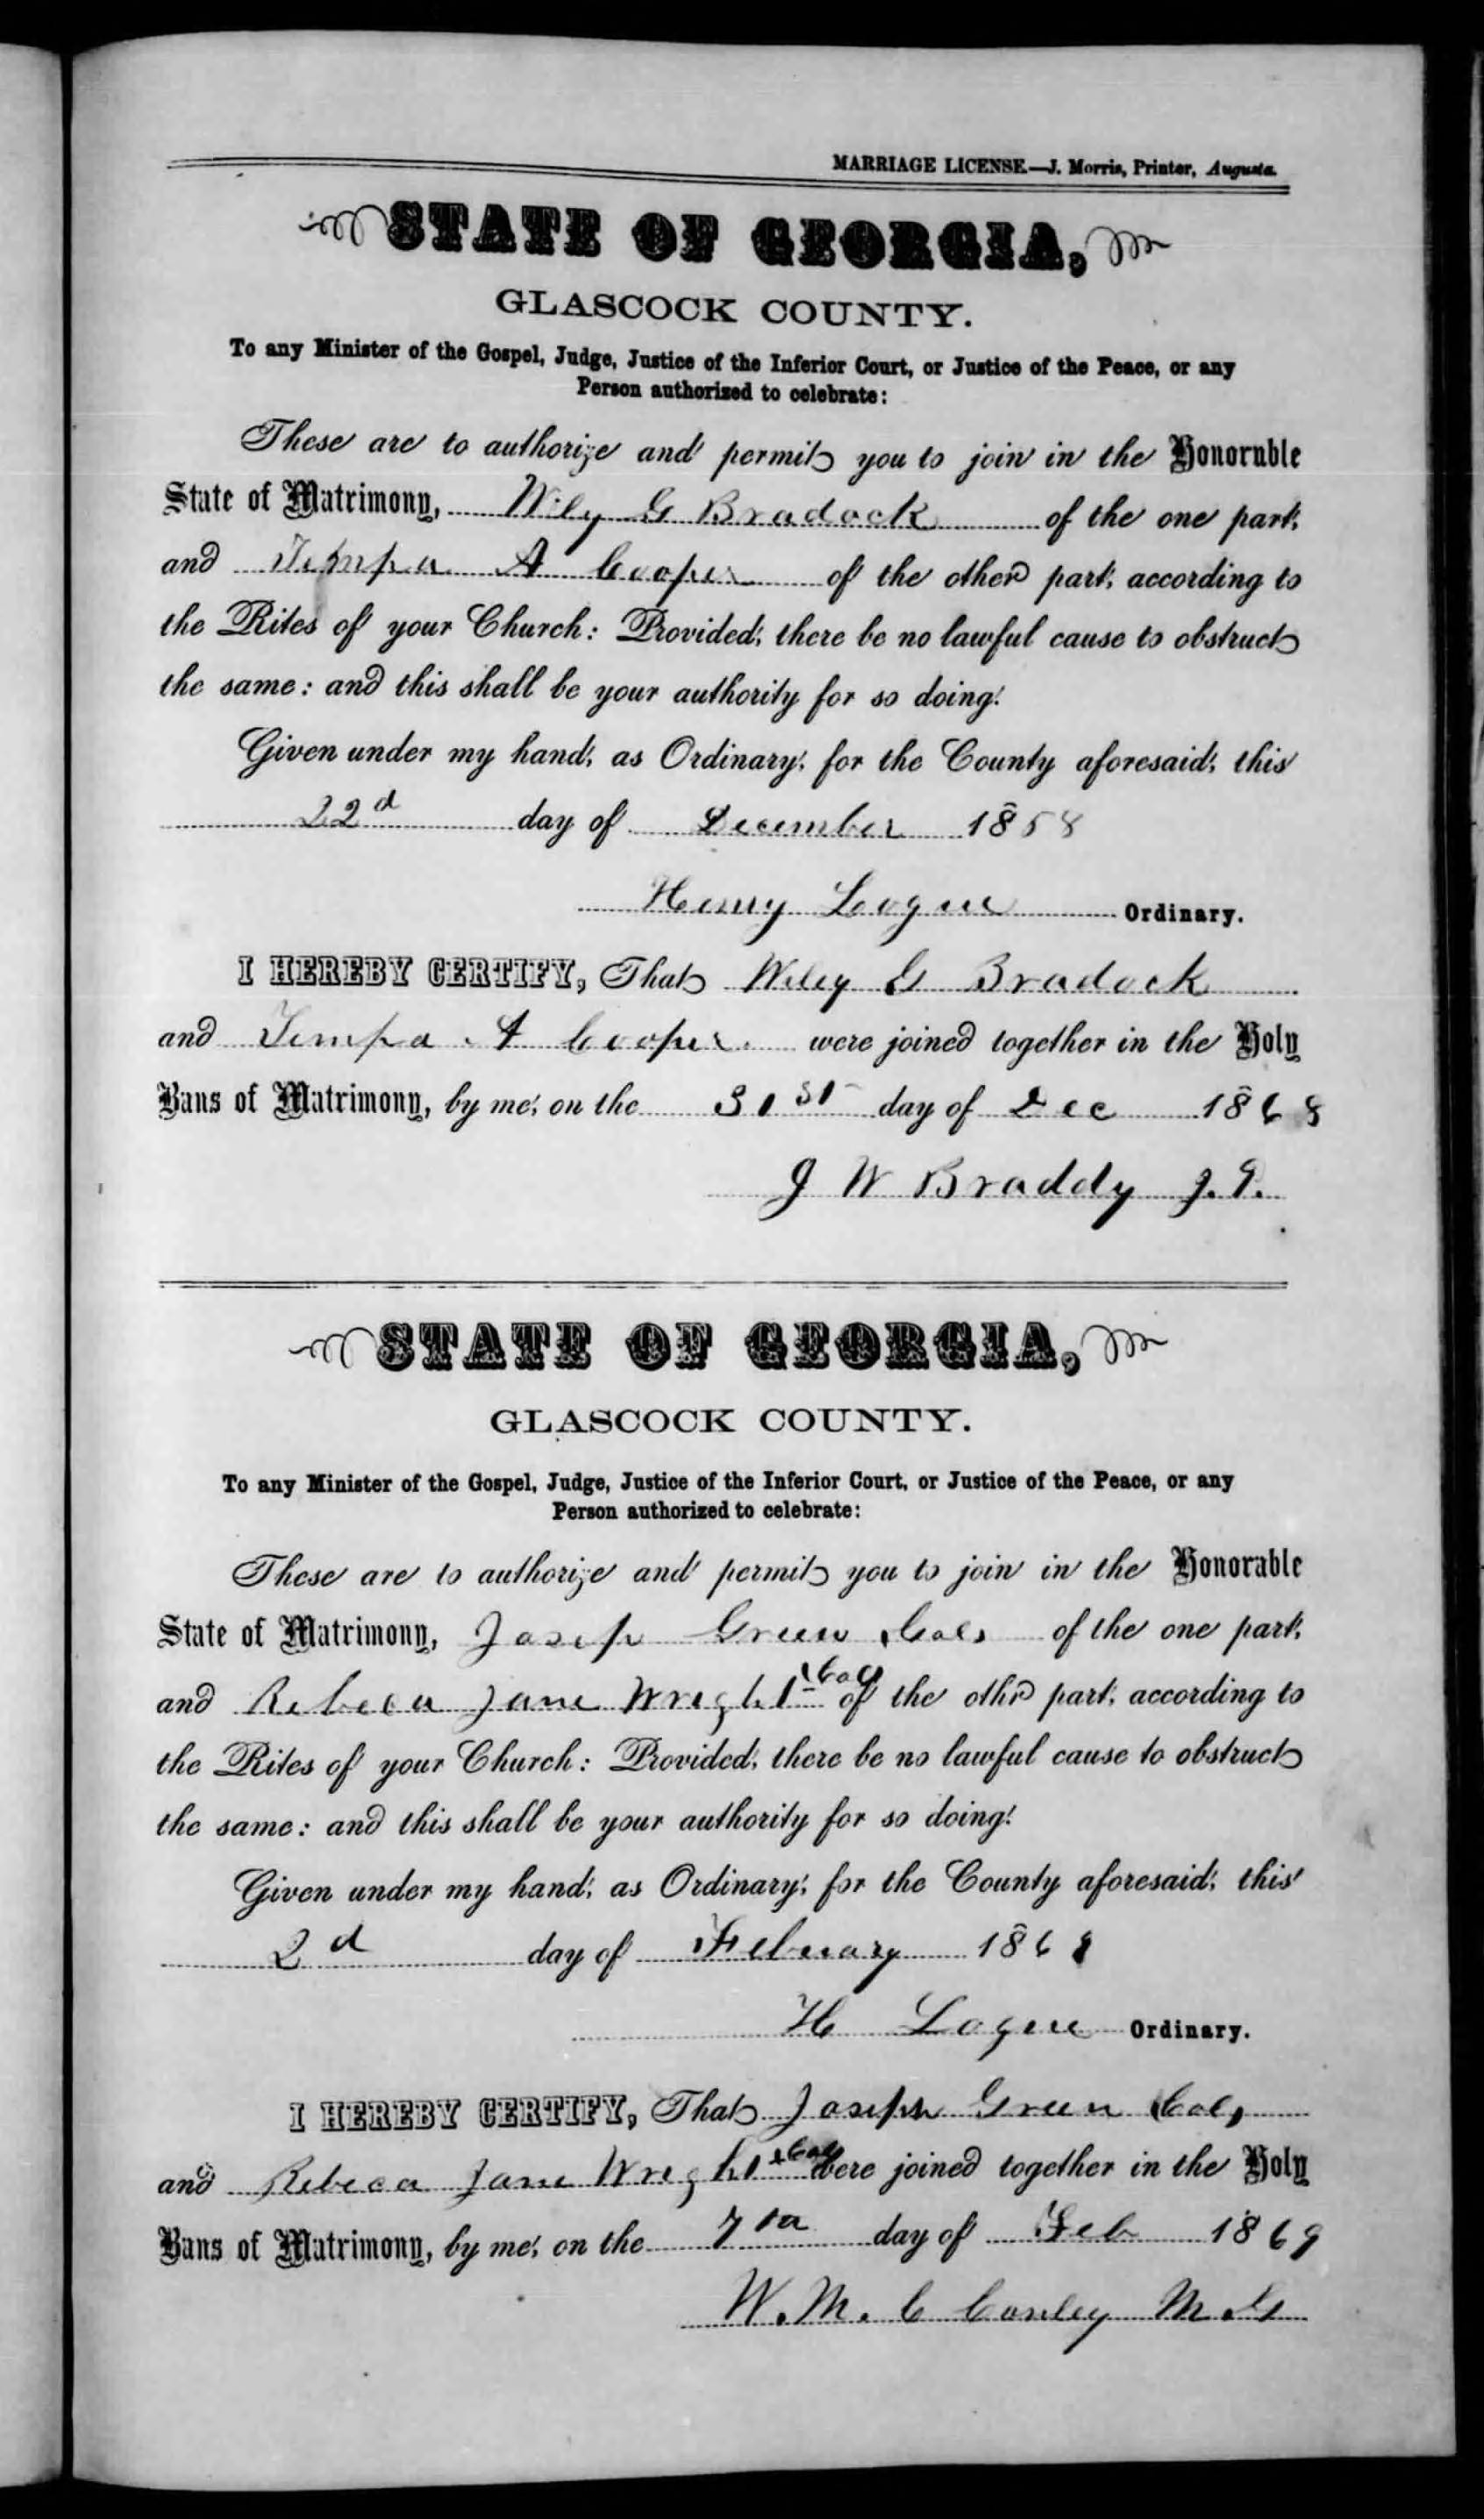 MARRIAGE LICENSE.—J. Morris, Printer, Augusta.
STATE OF GEORGIA,
GLASCOCK COUNTY.
To any Minister of the Gospel, Judge, Justice of the Inferior Court, or Justice of the Peace, or any
Person authorized to celebrate:
These are to authorize and permit you to join in the Honorable
State of Matrimony, Wily G Bradock of the one part,
and Tempa A Cooper of the other part, according to
the Rites of your Church: Provided, there be no lawful cause to obstruct
the same: and this shall be your authority for so doing.
Given under my hand, as Ordinary, for the County aforesaid, this
22d day of December 1858
Henry Logue Ordinary.
I HEREBY CERTIFY, That Wiley G Bradock
and Tempa A Cooper were joined together in the Holy
Bans of Matrimony, by me, on the 31st day of Dec 1868
J W Braddy J.P.
STATE OF GEORGIA,
GLASCOCK COUNTY.
To any Minister of the Gospel, Judge, Justice of the Inferior Court, or Justice of the Peace, or any
Person authorized to celebrate:
These are to authorize and permit you to join in the Honorable
State of Matrimony, Josep Green (Col) of the one part,
and Rebeca Jane Wright (Col) of the othr part, according to
the Rites of your Church: Provided, there be no lawful cause to obstruct
the same: and this shall be your authority for so doing.
Given under my hand, as Ordinary, for the County aforesaid, this
2d day of February 1869
H Logue Ordinary.
I HEREBY CERTIFY, That Joseph Green (Col)
and Rebeca Jane Wright (Col) were joined together in the Holy
Bans of Matrimony, by me, on the 7th day of Feb 1869
W. M. C Conley M G